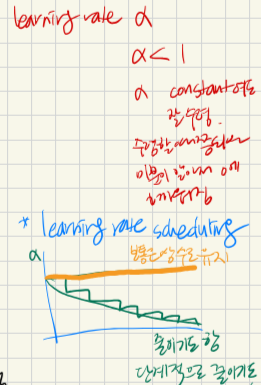 learning rate α
α < 1
α constant여도
잘 수렴.
수렴할
미분이 0에
가까워짐
* learning rate scheduling
보통은 상수로 유지
α
줄이기도 함
단계적으로 줄이기도